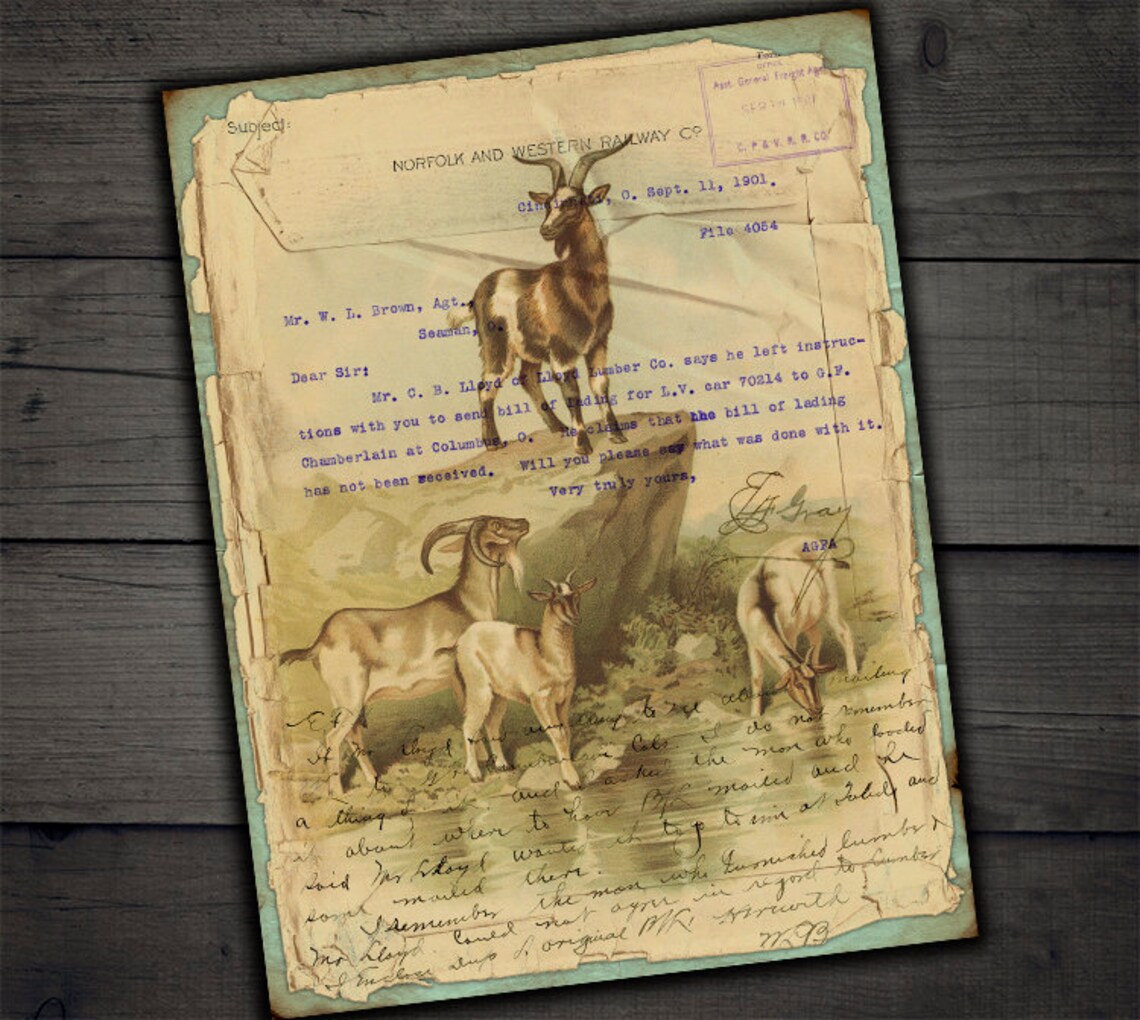 Form
OFFICE
Asst. General Freight Agt.
SEP 1901
C. P. & V. R. R. CO.
Subject:
NORFOLK AND WESTERN RAILWAY Cº
Cincinnati, O. Sept. 11, 1901.
File 4054
Mr. W. L. Brown, Agt.,
Seaman, O.
Dear Sir:
Mr. C. B. Lloyd of Lloyd Lumber Co. says he left instruc-
tions with you to send bill of lading for L.V. car 70214 to G.F.
Chamberlain at Columbus, O. He claims that the bill of lading
has not been received. Will you please say what was done with it.
Very truly yours,
Gray
AGFA
If Mr Lloyd to me about mailing
to Cols. I do not remember
a thing and asked the man who loaded
it about where to have B/L mailed and he
said Mr Lloyd wanted it to time at and
some mailed there.
I remember the man who furnished lumber
Mr Lloyd could not agree in regard to lumber
I Enclose original B/L herewith
WB